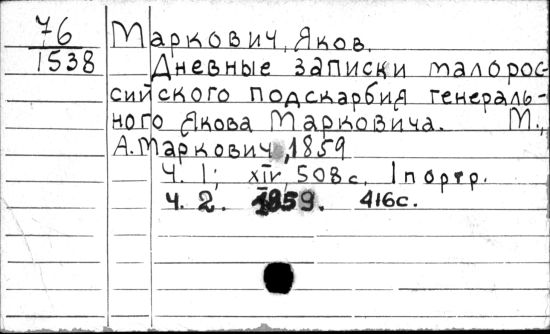 76
1538
Маркович, Яков.
Дневные записки малорос-
сийского подскарбия генераль-
ного Якова Марковича. М.,
А. Маркович, 1859
Ч. 1; XIV, 508 с. 1 портр.
Ч. 2. 1859. 416с.